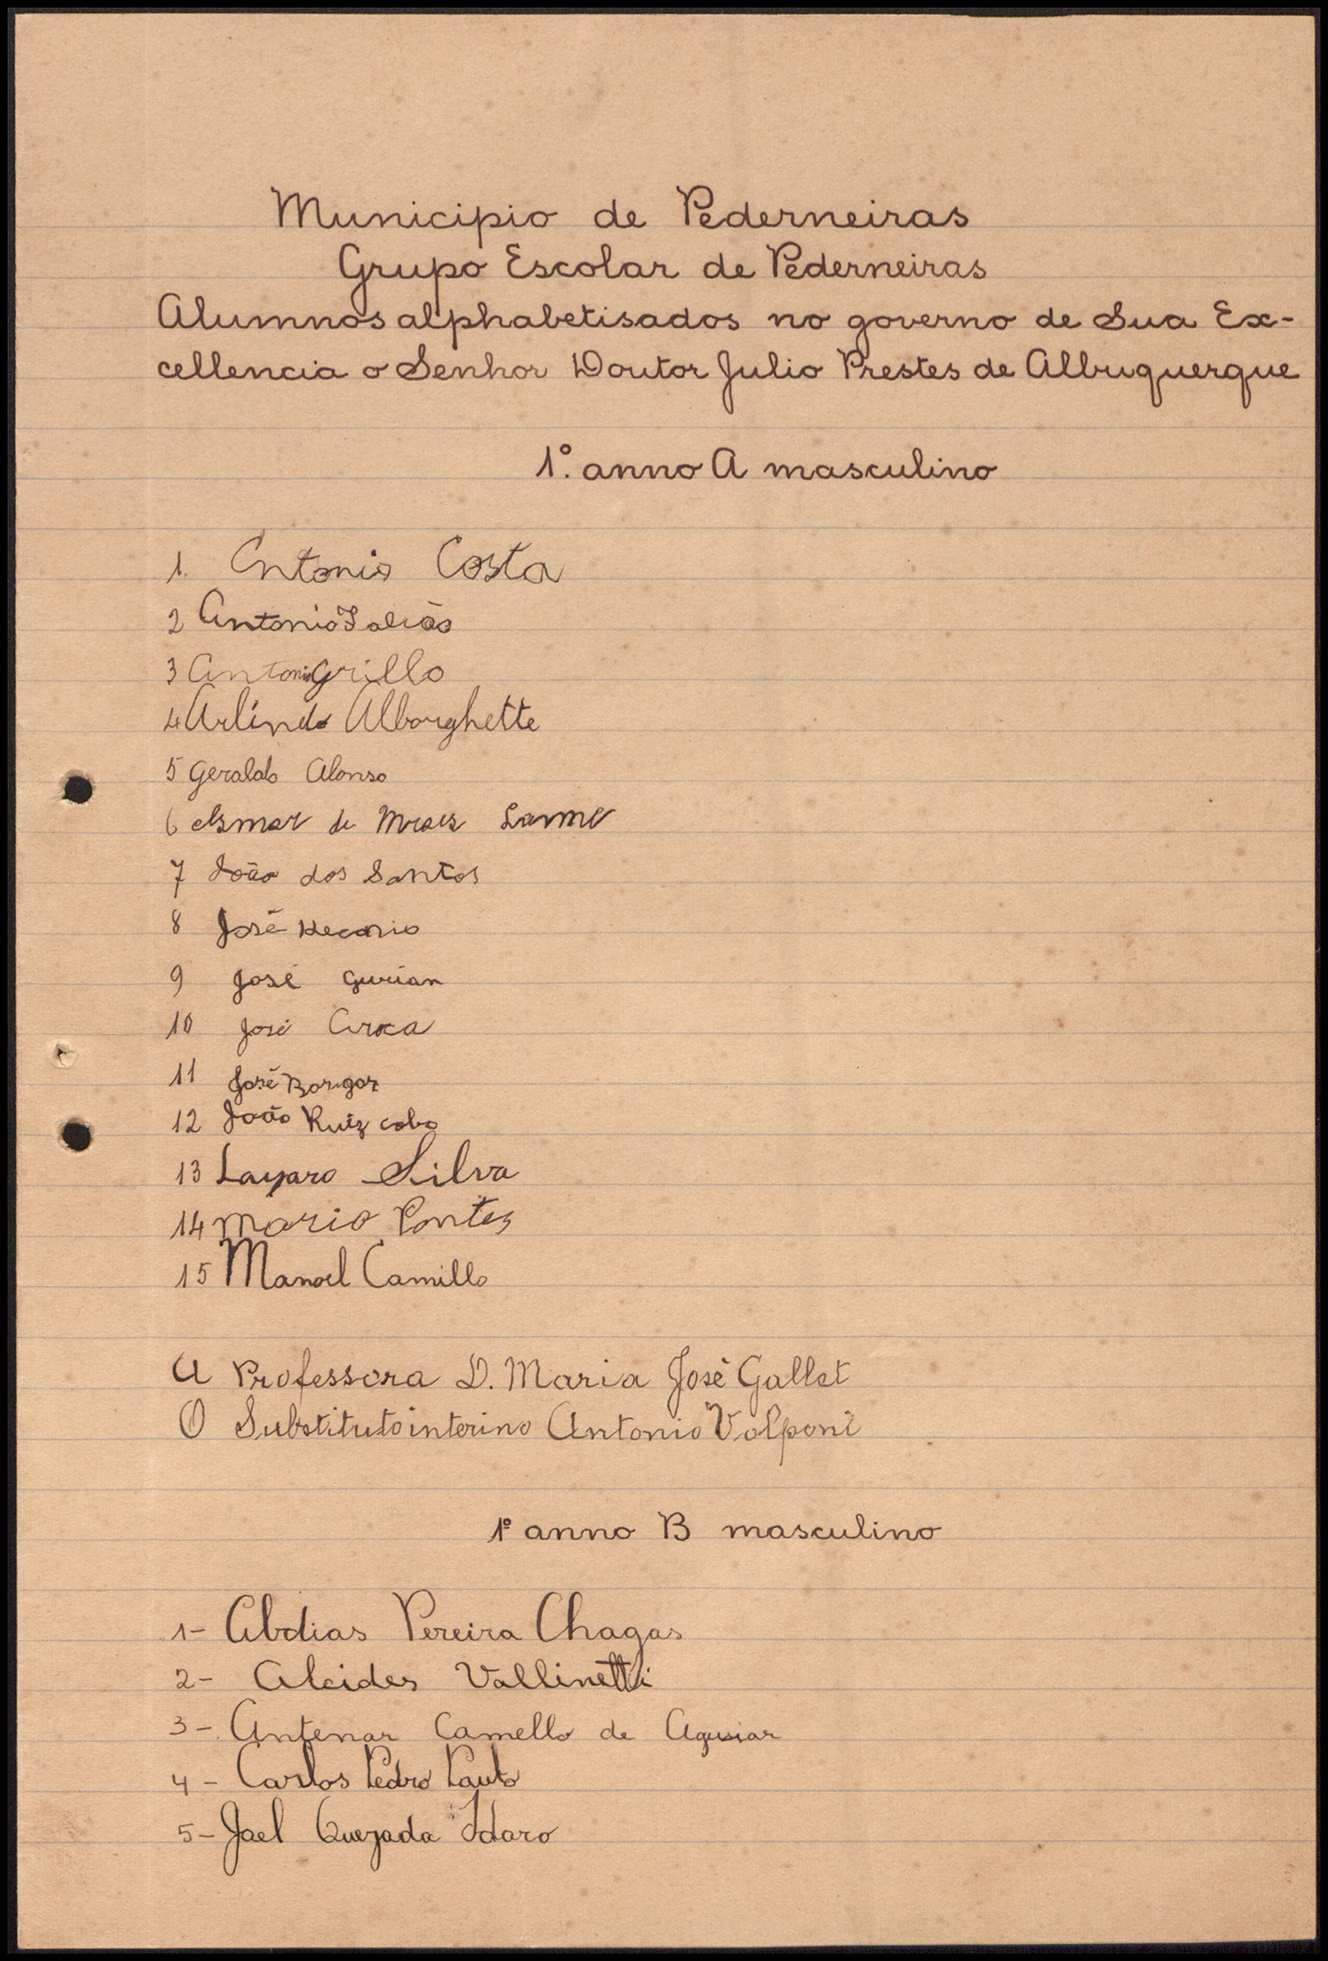 Municipio de Pederneiras
Grupo Escolar de Pederneiras
Alumnos alphabetisados no governo de Sua Ex-
cellencia o Senhor Doutor Julio Prestes de Albuquerque
1º. anno A masculino
1. Antonio Costa
2 Antonio
3 Antonio Grillo
4 Arlindo Alborghette
5 Geraldo Alonso
6 de
7 João dos Santos
8 José
9 José
10 José Aroca
11 José
12 João Ruiz cobo
13 Layaro Silva
14 Mario Pontes
15 Manoel Camillo
A Professora D. Maria José Gallet
O Substituto interino Antonio Volponi
1º anno B masculino
1- Abdias Pereira Chagas
2- Alcides Vallinetti
3- Antenar Camello de Aguiar
4- Carlos Pedro
5- Jael Quezada